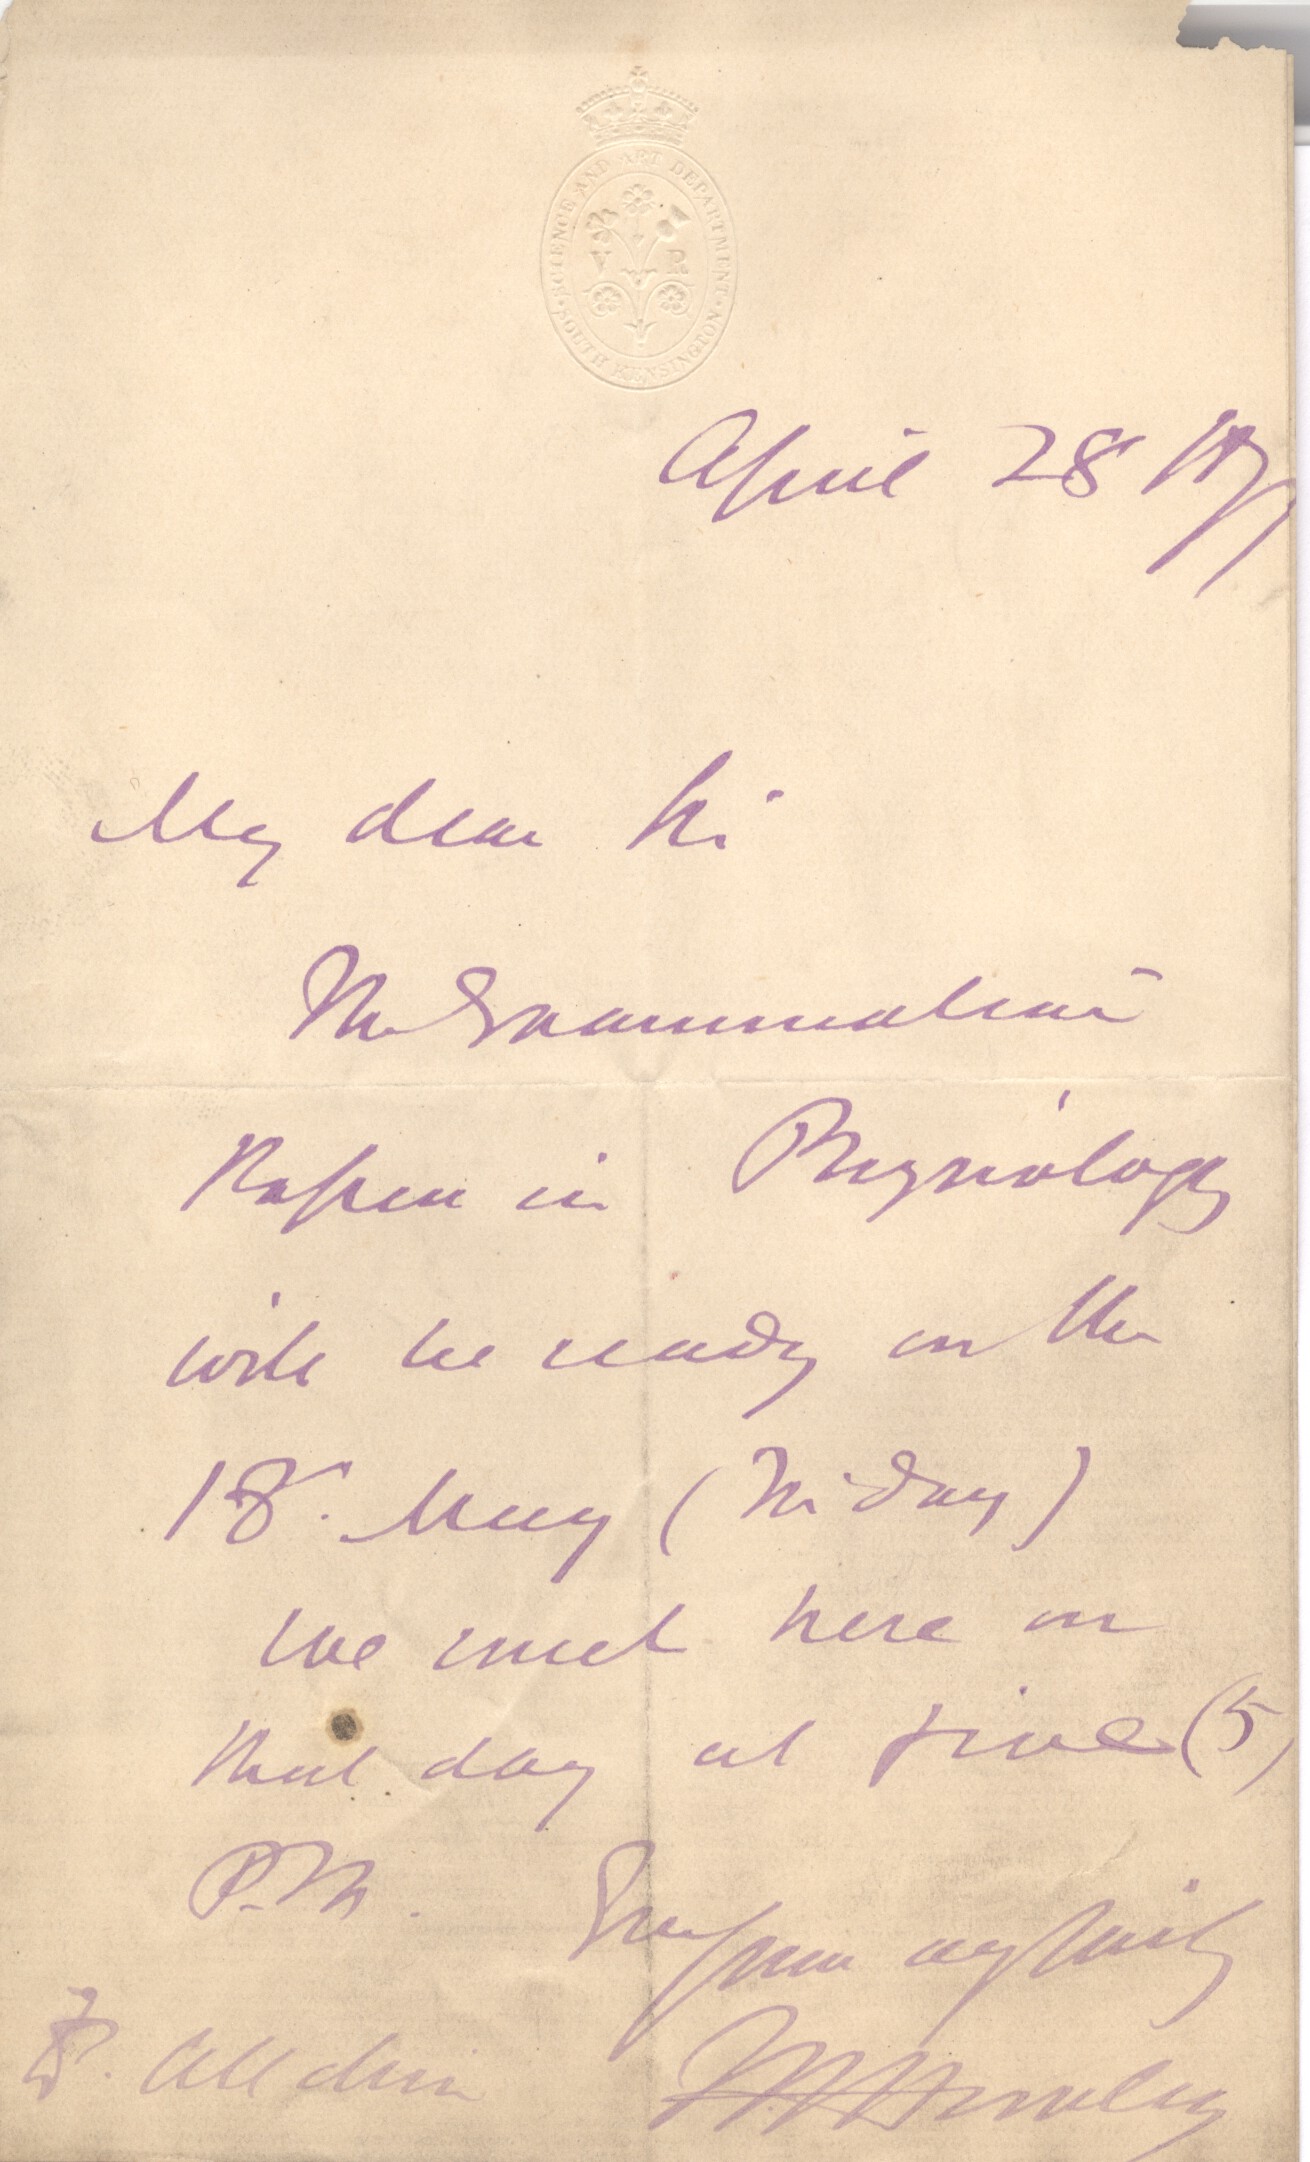 SCIENCE AND ART DEPARTMENT
V R
SOUTH KENSINGTON
April 28 1877
My dear Sir
The Examination
Papers in Physiology
will be ready on the
18. May (Friday)
We meet here on
that day at five (5)
P.M.
Yours very faithfully
T. H. Huxley